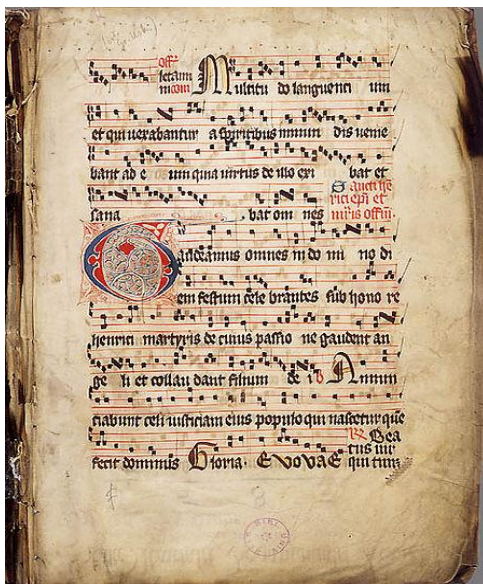 off̄
letam
m com Multitu do languenci um
et qui vexabantur a spiritibus inmun dis venie
bant ad e um quia virtus de illo exi bat et
sana bat om nes Sancti he
rici epī et
mr̄is offm̄.
Gaudeamus omnes in do mi no di
em festum cele brantes sub hono re
henrici martyris de cuius passio ne gaudent an
ge li et collau dant filium de i Annun
ciabunt celi iusticiam eius populo qui nascetur quē
fecit dominus Gloria. Evovae R̄ Bea
tus vir
qui tim